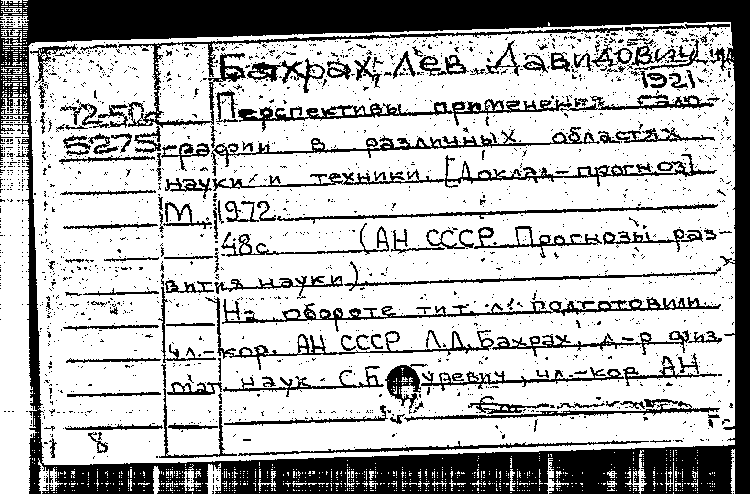 Бахрах, Лев Давидович
1921
72-50
Перспективы применения голо-
5275
графии в различных областях
науки и техники. [Доклад-прогноз]
М., 1972.
48с. (АН СССР. Прогнозы раз-
вития науки).
На обороте тит. л.: подготовили
чл.-кор. АН СССР Л.Д. Бахрах, д-р физ.-
мат. наук С.Б. Гуревич, чл.-кор АН
8